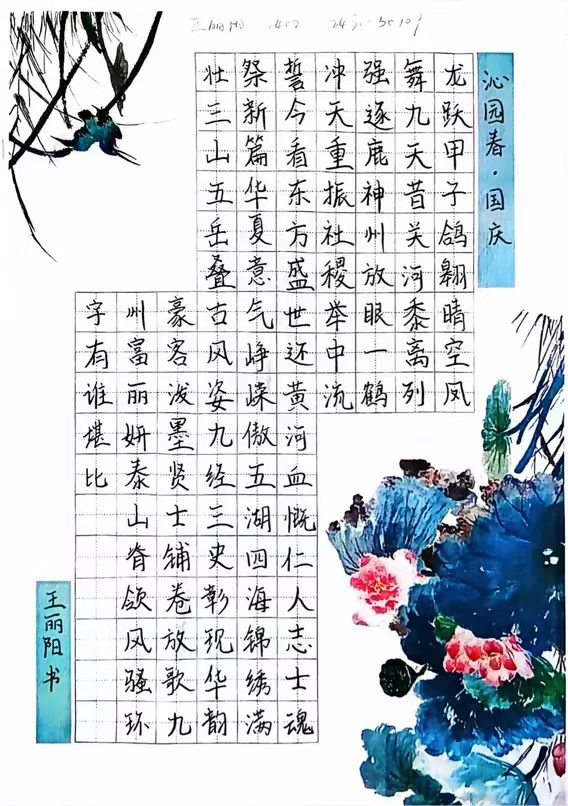 王丽阳
沁园春·国庆
龙跃甲子鸽翱晴空凤
舞九天昔关河黍离列
强逐鹿神州放眼一鹤
冲天重振社稷举中流
誓今看东方盛世还黄河血慨仁人志士魂
祭新篇华夏意气峥嵘傲五湖四海锦绣满
壮三山五岳叠古风姿九经三史彰现华韵
豪客泼墨贤士铺卷放歌九
州富丽妍泰山脊领风骚环
宇有谁堪比
王丽阳书